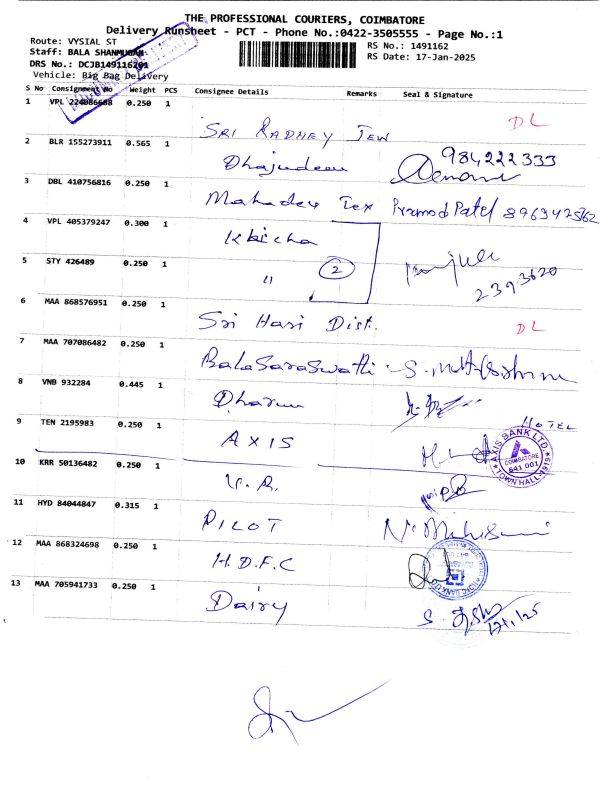 THE PROFESSIONAL COURIERS, COIMBATORE
Delivery Runsheet - PCT - Phone No.:0422-3505555 - Page No.:1
Route: VYSIAL ST
Staff: BALA SHANMUGAM
RS No.: 1491162
DRS No.: DCJB1491162
RS Date: 17-Jan-2025
Vehicle: Big Bag Delivery
S No Consignment No Weight PCS Consignee Details Remarks Seal & Signature
1 VPL 224086688 0.250 1 SRI RADHEY TEW DL
2 BLR 155273911 0.565 1 984222333
3 DBL 410756816 0.250 1 Mahadev Tex Pramod Patel
4 VPL 405379247 0.300 1
5 STY 426489 0.250 1 " 2 2393620
6 MAA 868576951 0.250 1 Sri Hari Dist. DL
7 MAA 707086482 0.250 1 BalaSaraswathi
8 VNB 932284 0.445 1
9 TEN 2195983 0.250 1 AXIS HOTEL
AXIS BANK LTD.
COIMBATORE
641 001
TOWN HALL
10 KRR 50136482 0.250 1 V.R.
11 HYD 84044847 0.315 1 PILOT
12 MAA 868324698 0.250 1 H.D.F.C
13 MAA 705941733 0.250 1 Dairy